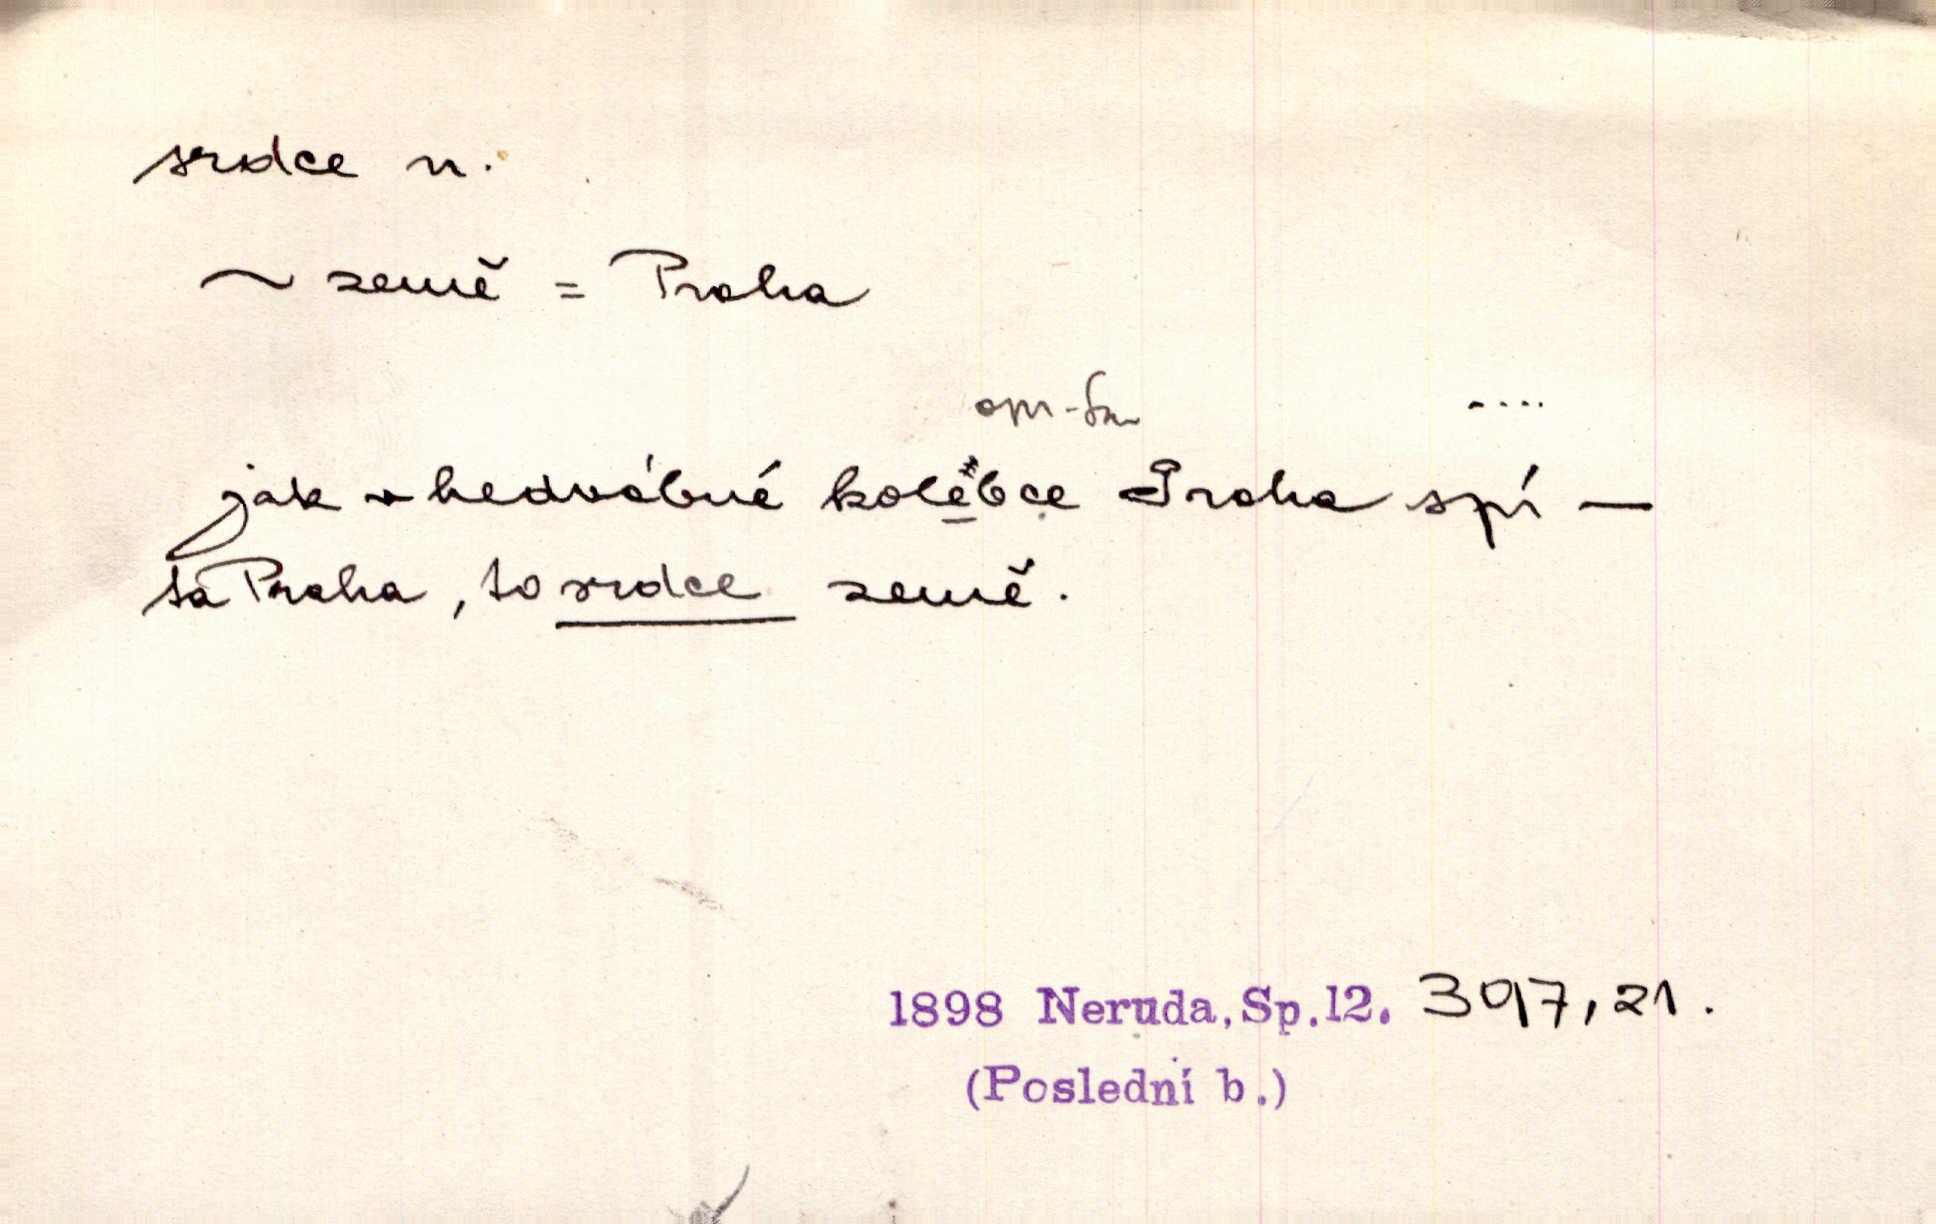 srdce n.
~ země = Praha
....
jak v hedvábné kolébce Praha spí —
ta Praha, to srdce země.
1898 Neruda, Sp.12. 397,21.
(Poslední b.)